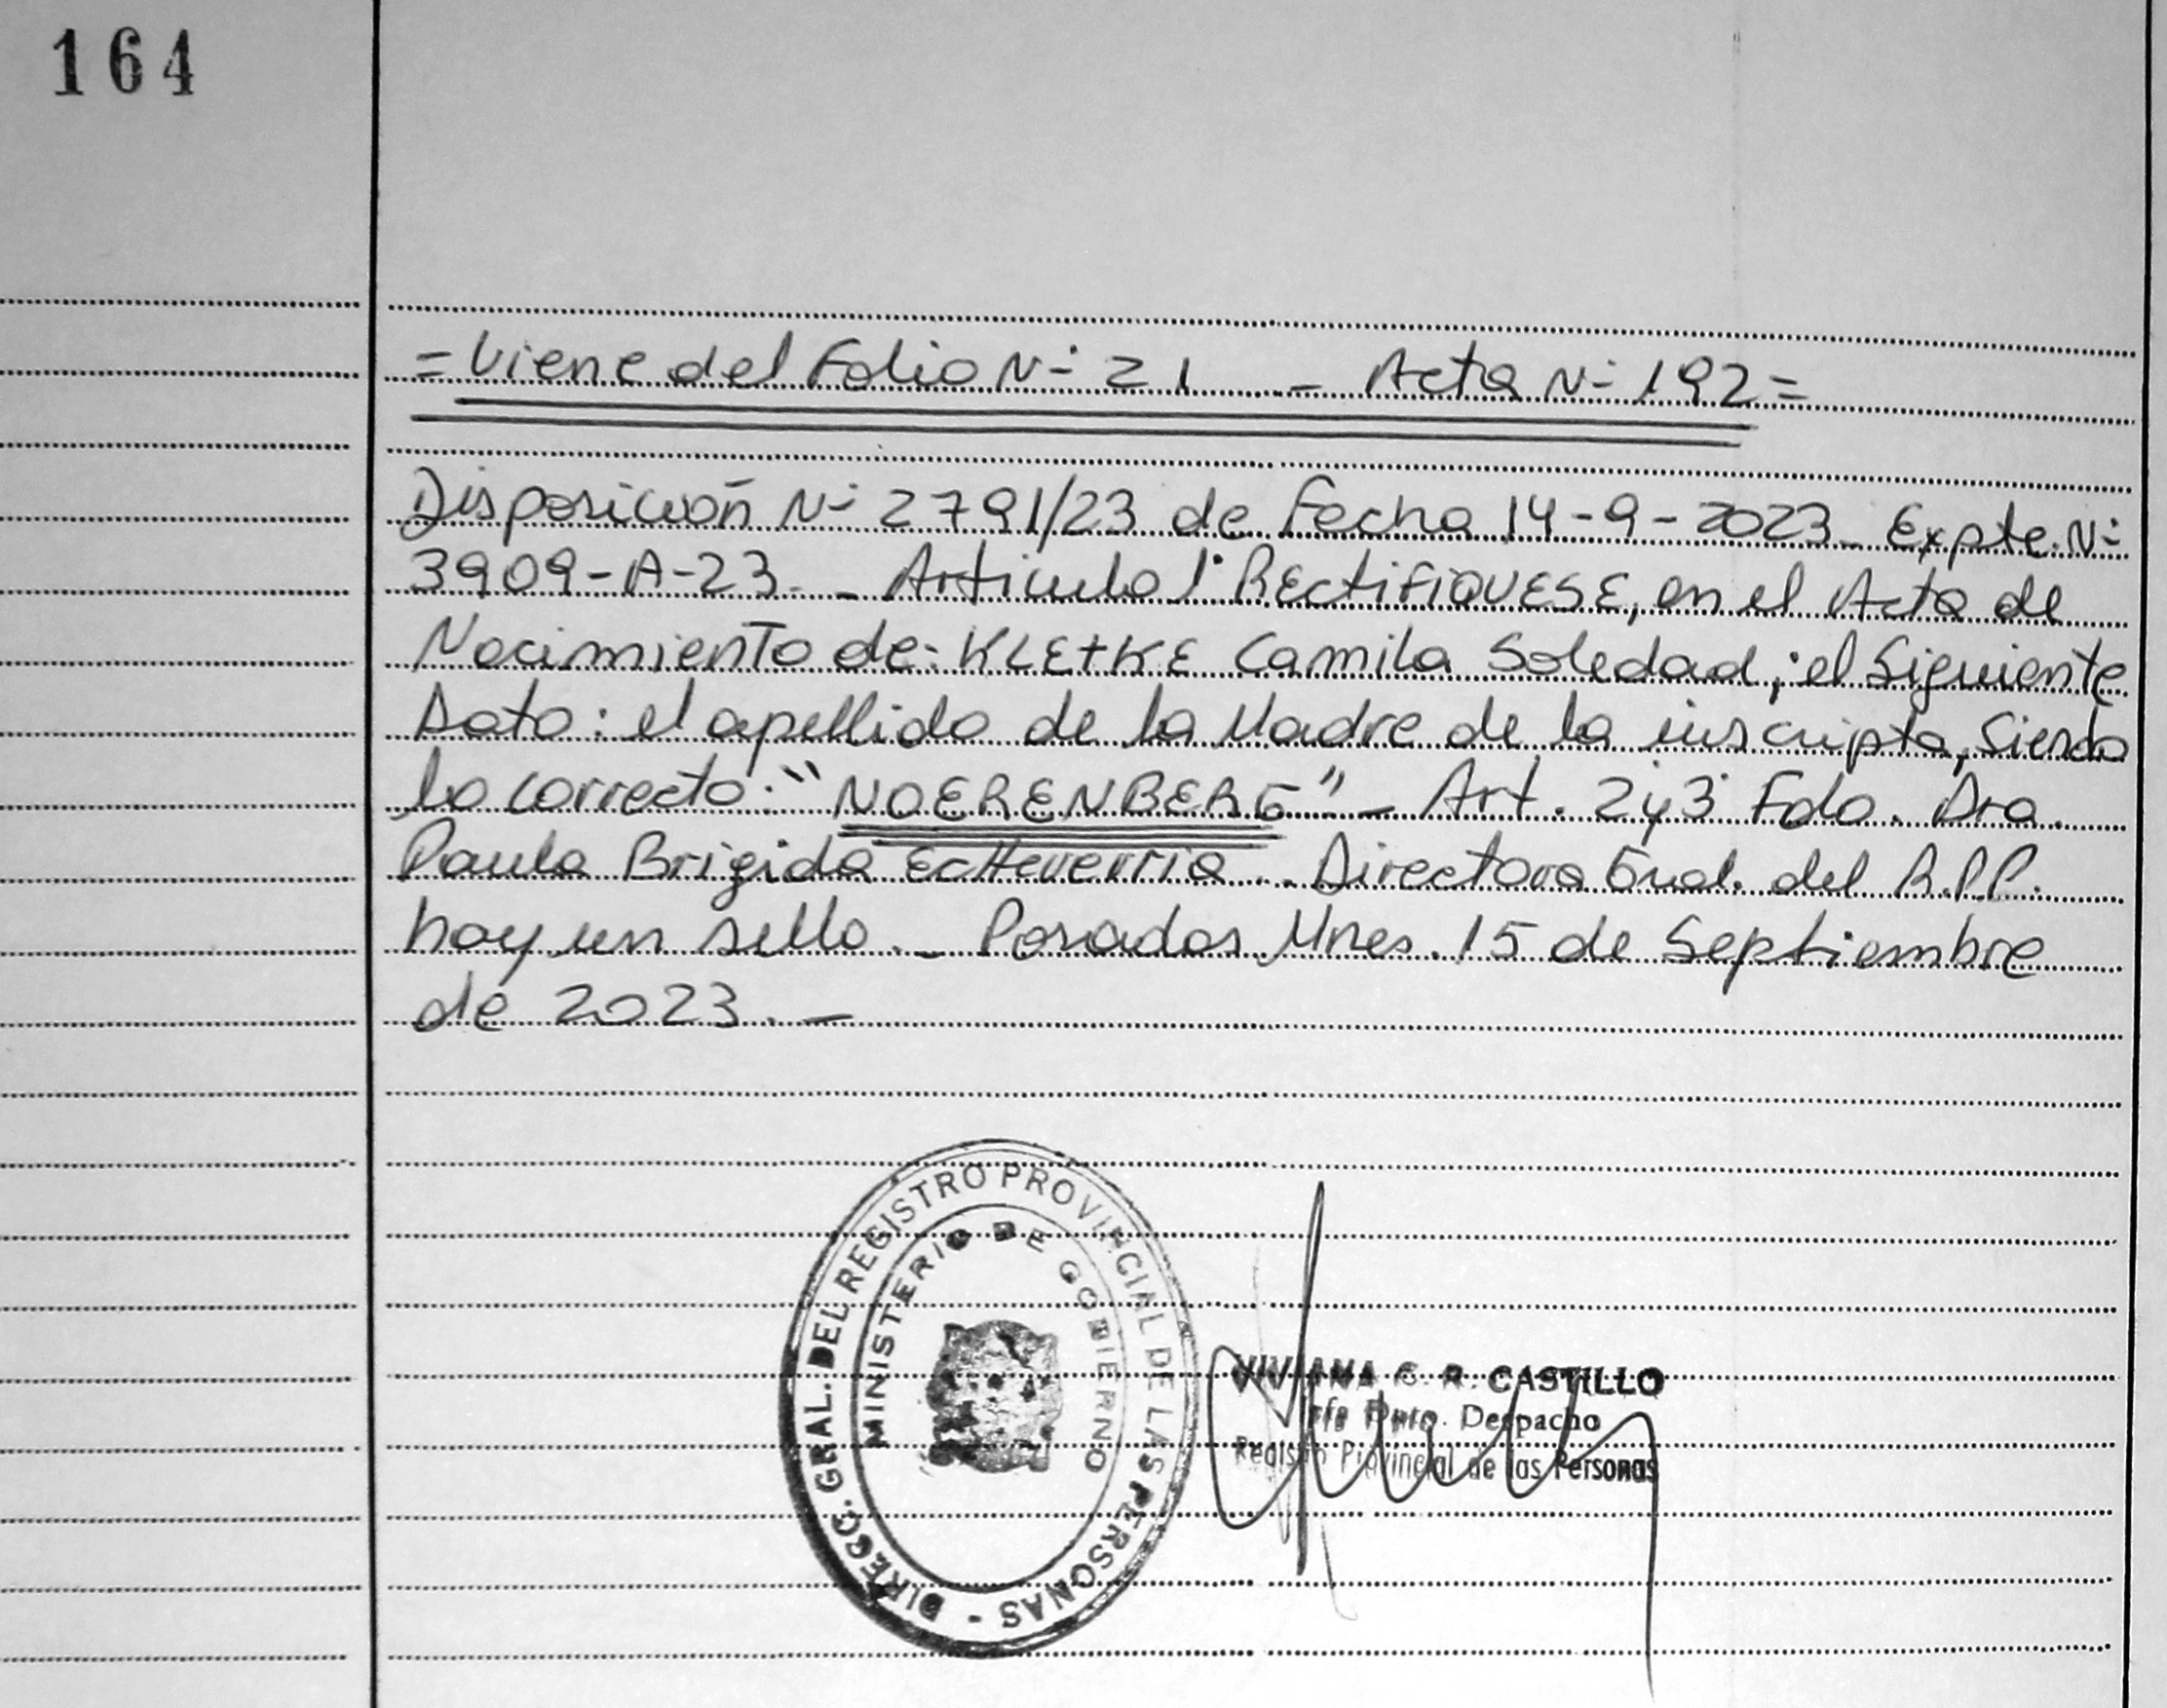 164
= Viene del Folio N- 21 - Acta N- 192 =
Disposición N- 2791/23 de Fecha 14-9-2023_ Expte. N-
3909-A-23. _ Articulo 1° RECtiFiQUESE, en el Acta de
Nacimiento de: KLEtKE Camila Soledad; el Siguiente
Dato: el apellido de la Madre de la inscripta, Siendo
lo correcto: "NOERENBERG" _ Art. 2y3 Fdo. Dra.
Paula Brigida EcHeverria _ Directora Gral. del R.P.P.
hay un sello. _ Posadas Mnes. 15 de Septiembre
de 2023. _
DIRECC. GRAL. DEL REGISTRO PROVINCIAL DE LAS PERSONAS -
MINISTERIO DE GOBIERNO
VIVIANA C. R. CASTILLO
Dpto. Despacho
Registro Provincial de las Personas